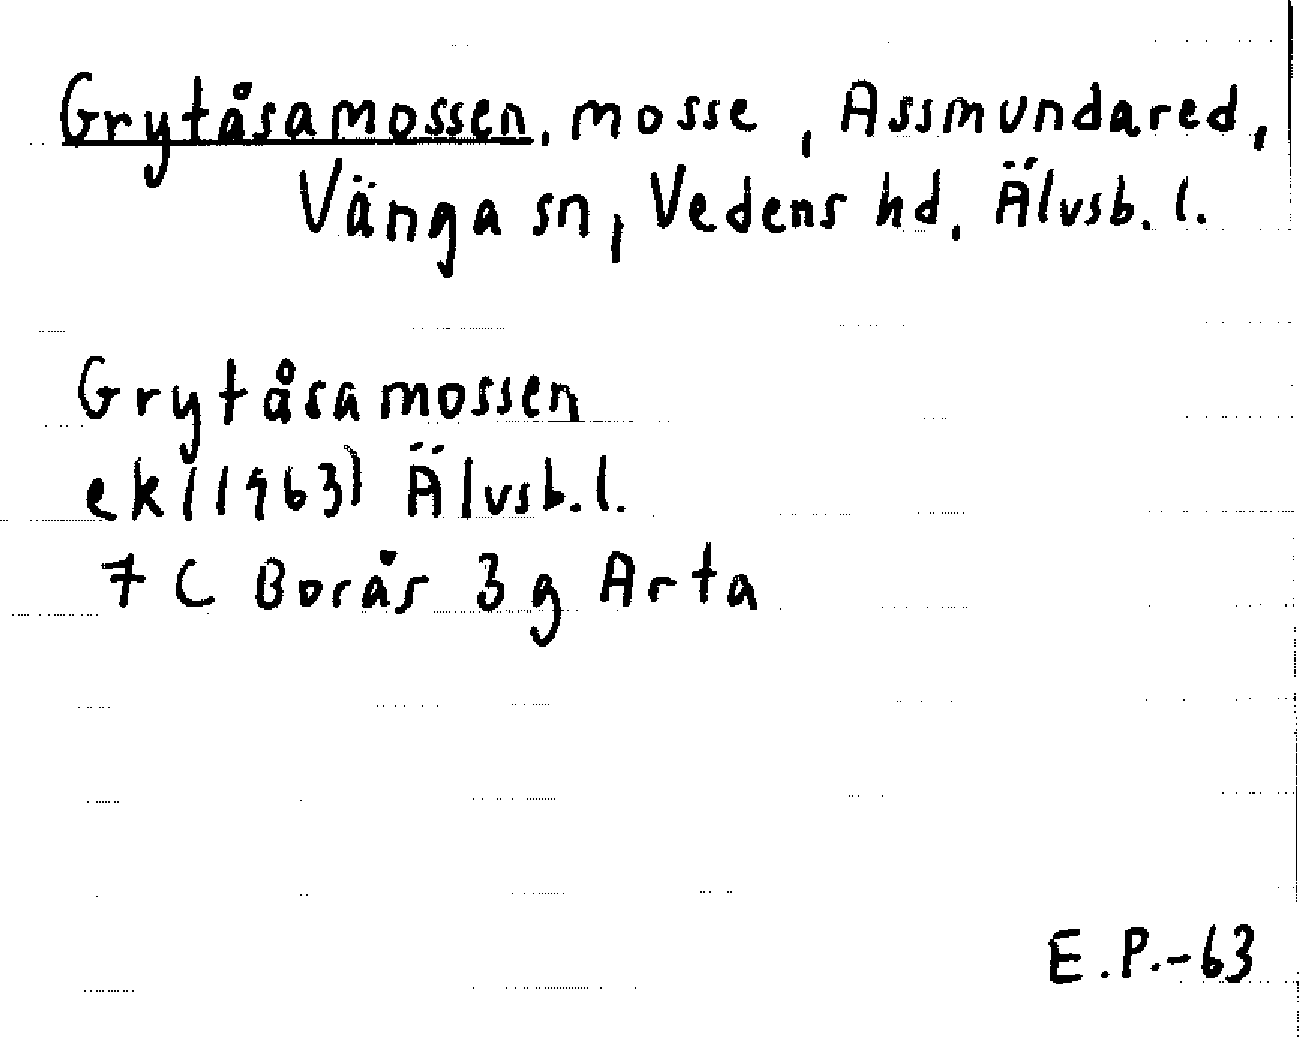 Grytåsamossen, mosse, Assmundared,
Vänga sn, Vedens hd, Älvsb. l.
Grytåsamossen
ek (1963) Älvsb. l.
7 C Borås 3 g Arta
E.P.-63